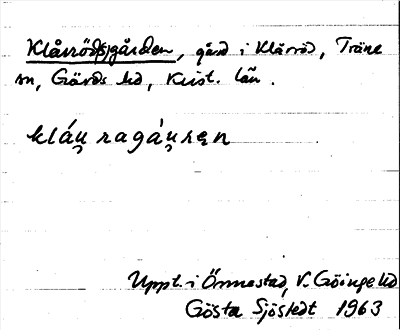 Klåvröds(gården, gård i Klåvröd, Träne
sn, Gärds hd, Krist. län.
kláu̯ ragáu̯rən
Uppt. i Önnestad, V. Göinge hd
Gösta Sjöstedt 1963